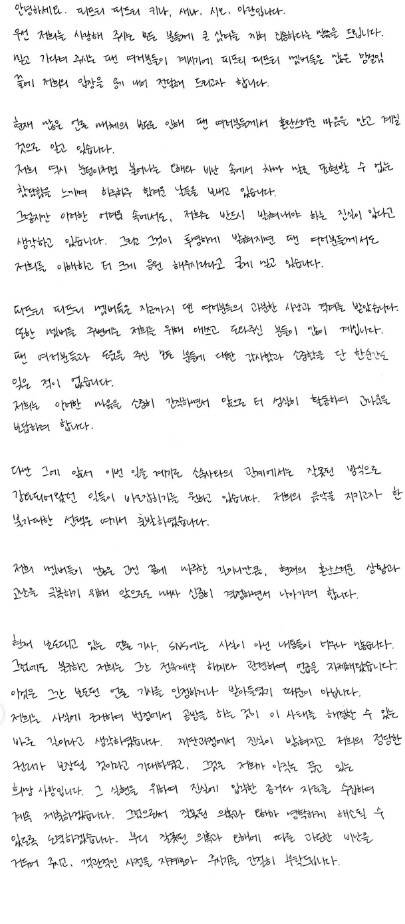 안녕하세요. 피프티 피프티 키나, 새나, 시오, 아란입니다.
우선 저희를 사랑해 주시는 모든 분들께 큰 심려를 끼쳐 죄송하다는 말씀을 드립니다.
믿고 기다려 주시는 팬 여러분들이 계시기에 피프티 피프티 멤버들은 많은 망설임
끝에 저희의 입장을 용기 내어 전달해 드리고자 합니다.
현재 많은 언론 매체의 보도로 인해 팬 여러분들께서 혼란스러운 마음을 안고 계실
것으로 알고 있습니다.
저희 역시 눈덩이처럼 불어나는 오해와 비난 속에서 차마 말로 표현할 수 없는
참담함을 느끼며 하루하루 힘겨운 날들을 보내고 있습니다.
그렇지만 이러한 어려움 속에서도, 저희는 반드시 밝혀내야 하는 진실이 있다고
생각하고 있습니다. 그리고 그것이 투명하게 밝혀지면 팬 여러분들께서도
저희를 이해하고 더 크게 응원 해주시리라고 굳게 믿고 있습니다.
피프티 피프티 멤버들은 지금까지 팬 여러분들의 과분한 사랑과 격려를 받았습니다.
또한 멤버들 주변에는 저희를 위해 애쓰고 도와주신 분들이 많이 계십니다.
팬 여러분들과 도움을 주신 모든 분들에 대한 감사함과 소중함을 단 한순간도
잊은 적이 없습니다.
저희는 이러한 마음을 소중히 간직하면서 앞으로 더 성실히 활동하여 고마움을
보답하려 합니다.
다만 그에 앞서 이번 일을 계기로 소속사와의 관계에서는 잘못된 방식으로
강요되어왔던 일들이 바로잡히기를 원하고 있습니다. 저희의 음악을 지키고자 한
불가피한 선택은 여기서 출발하였습니다.
저희 멤버들이 많은 고민 끝에 시작한 길이니만큼, 현재의 혼란스러운 상황과
고난을 극복하기 위해 앞으로도 매사 신중히 결정하면서 나아가려 합니다.
현재 보도되고 있는 언론 기사, SNS에는 사실이 아닌 내용들이 너무나 많습니다.
그럼에도 불구하고 저희는 그간 전속계약 해지와 관련하여 언급을 자제해왔습니다.
이것은 그간 보도된 언론 기사를 인정하거나 받아들였기 때문이 아닙니다.
저희는 사실에 근거하여 법정에서 공방을 하는 것이 이 사태를 해결할 수 있는
바른 길이라고 생각하였습니다. 재판과정에서 진실이 밝혀지고 저희의 정당한
권리가 보장될 것이라고 기대하였고, 그것은 저희가 아직도 품고 있는
희망 사항입니다. 그 실현을 위하여 진실에 입각한 증거와 자료를 수집하여
계속 제출하겠습니다. 그럼으로써 잘못된 의혹과 오해가 명확하게 해소될 수
있도록 노력하겠습니다. 부디 잘못된 의혹과 오해에 따른 과도한 비난을
거두어 주시고, 객관적인 시정을 지켜봐 주시기를 간절히 부탁드립니다.